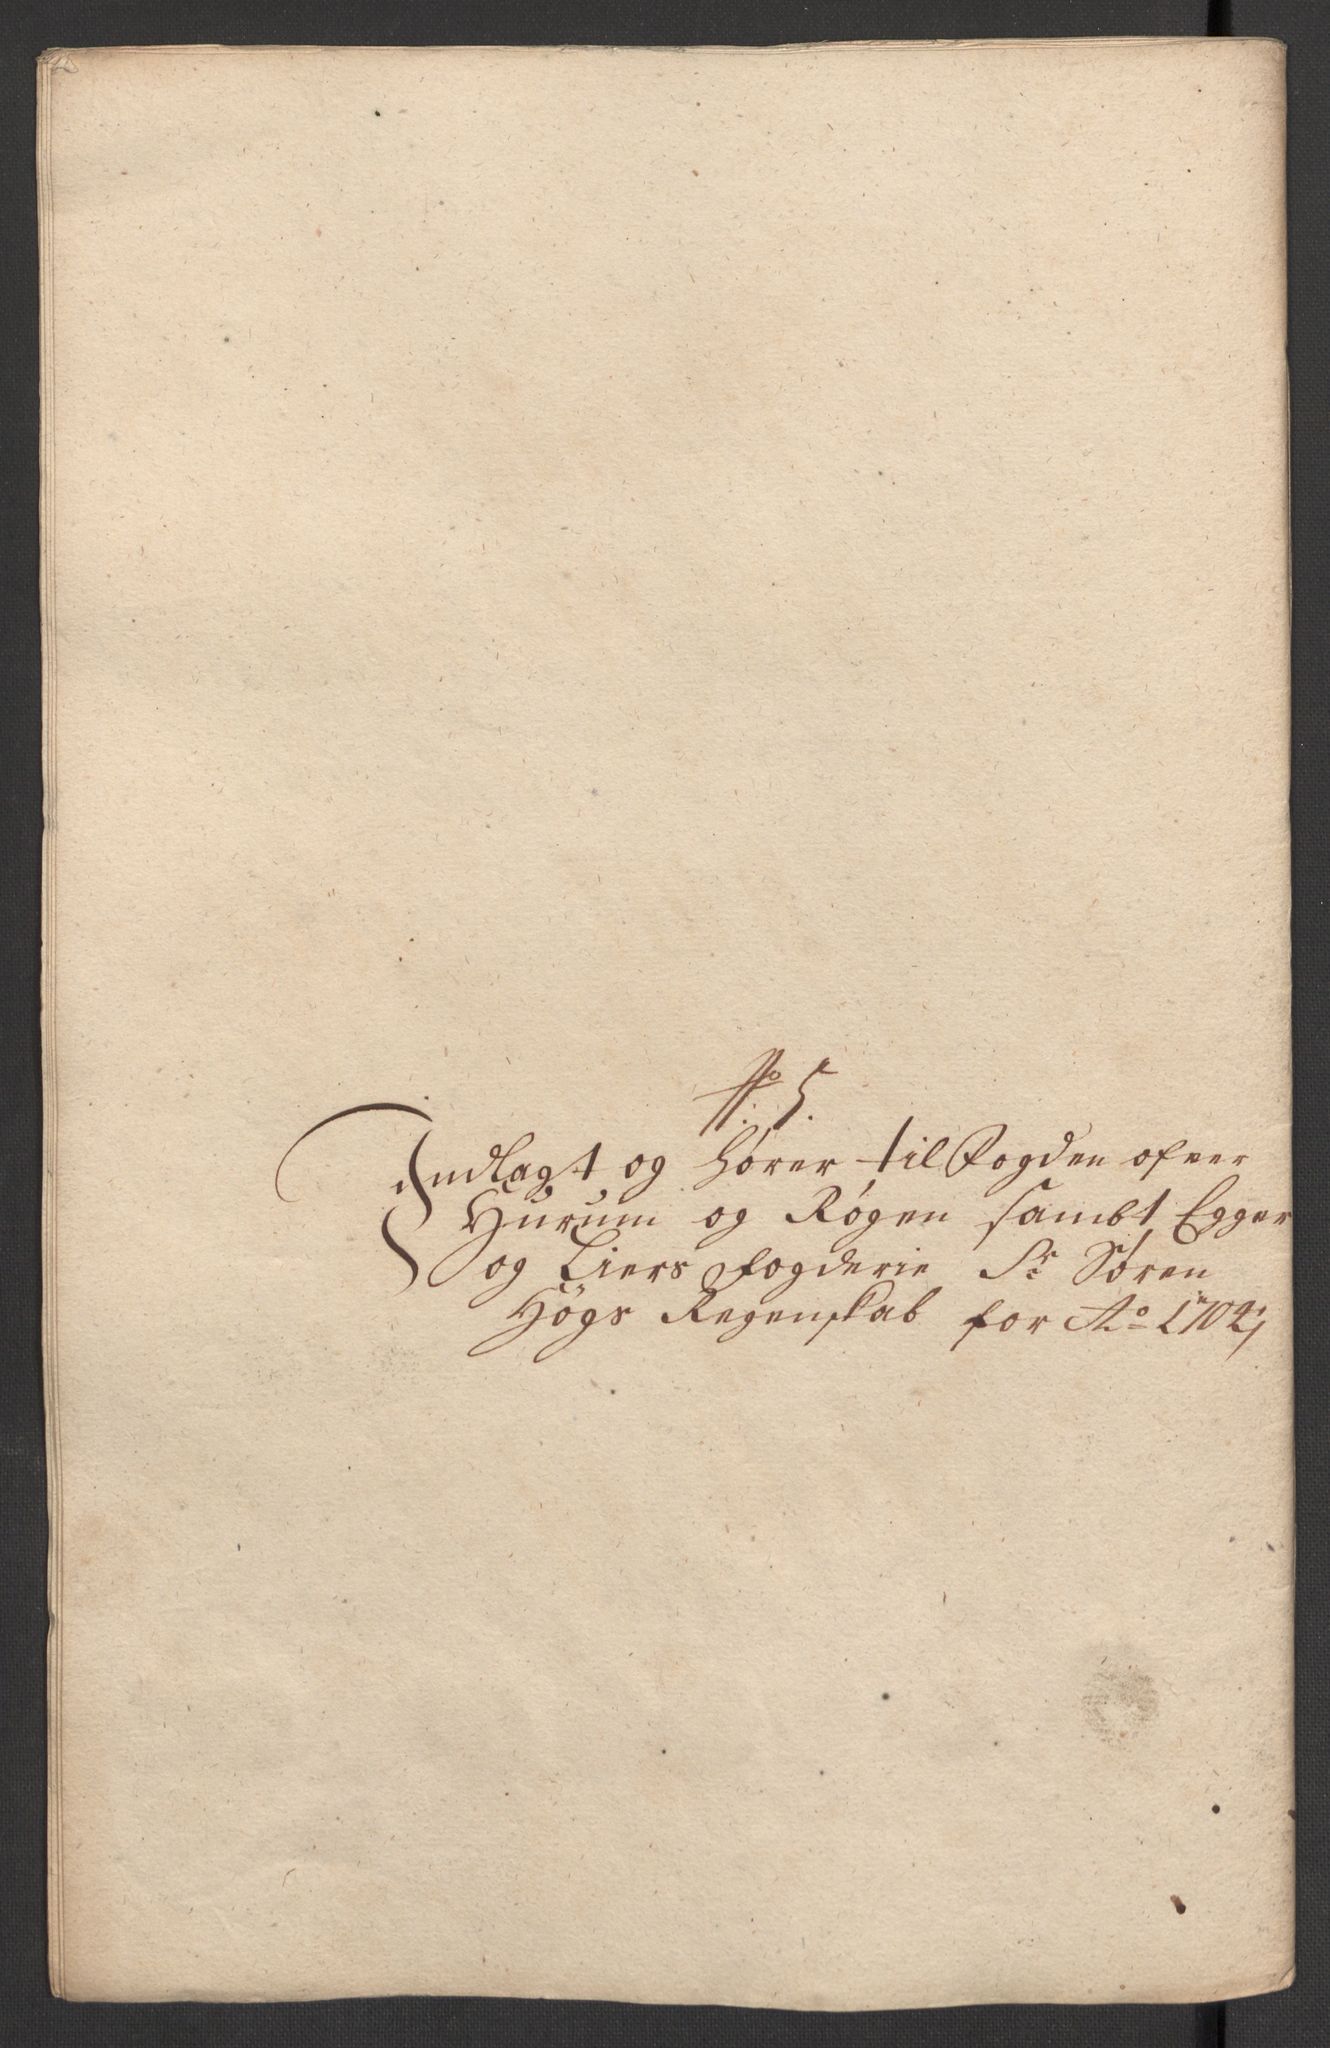 No 5.
Indlagt og hører til Fogden ofver
Hurum og Røgen sambt Egger
og Liers fogderie Sr Søren
Högs Regenskab for Ao 1704